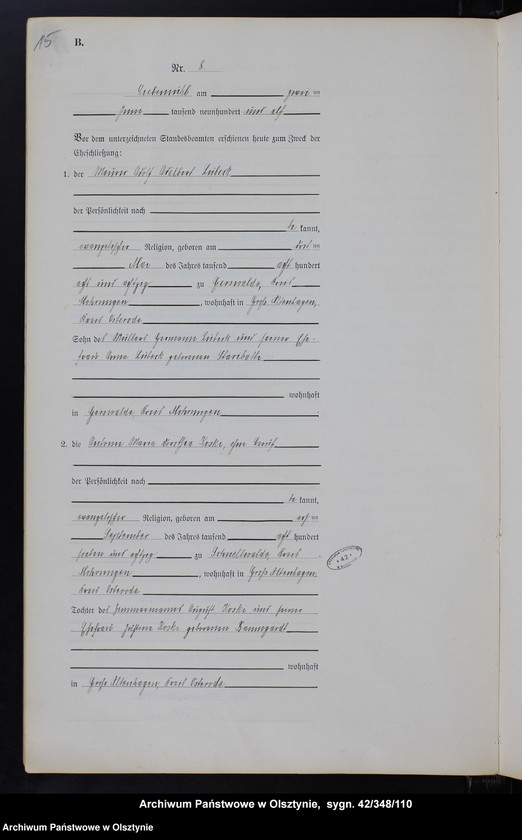 15
B.
Nr. 8.
am zwei
Juni tausend neunhundert und elf
Vor dem unterzeichneten Standesbeamten erschienen heute zum Zweck der
Eheschließung:
1. der Maurer Adolf Adalbert Lubeck
der Persönlichkeit nach
be kannt,
evangelischer Religion, geboren am
Mai des Jahres tausend acht hundert
acht und achtzig zu Gerswalde, Kreis
Mohrungen, wohnhaft in Groß Altenhagen,
Kreis Osterode
Sohn des Müllers Hermann Lubeck und seiner Ehe-
frau Anna Lubeck geborenen
wohnhaft
in Gerswalde, Kreis Mohrungen
2. die Maria Dorothea Koske, ohne Beruf
der Persönlichkeit nach
be kannt,
evangelischer Religion, geboren am
September des Jahres tausend acht hundert
sieben und achtzig zu Schnellwalde, Kreis
Mohrungen, wohnhaft in Groß Altenhagen,
Kreis Osterode
Tochter des Zimmermanns August Koske und seiner
Ehefrau Koske geborenen Baumgardt
wohnhaft
in Groß Altenhagen, Kreis Osterode
Archiwum Państwowe w Olsztynie, sygn. 42/348/110
Archiwum Państwowe w Olsztynie